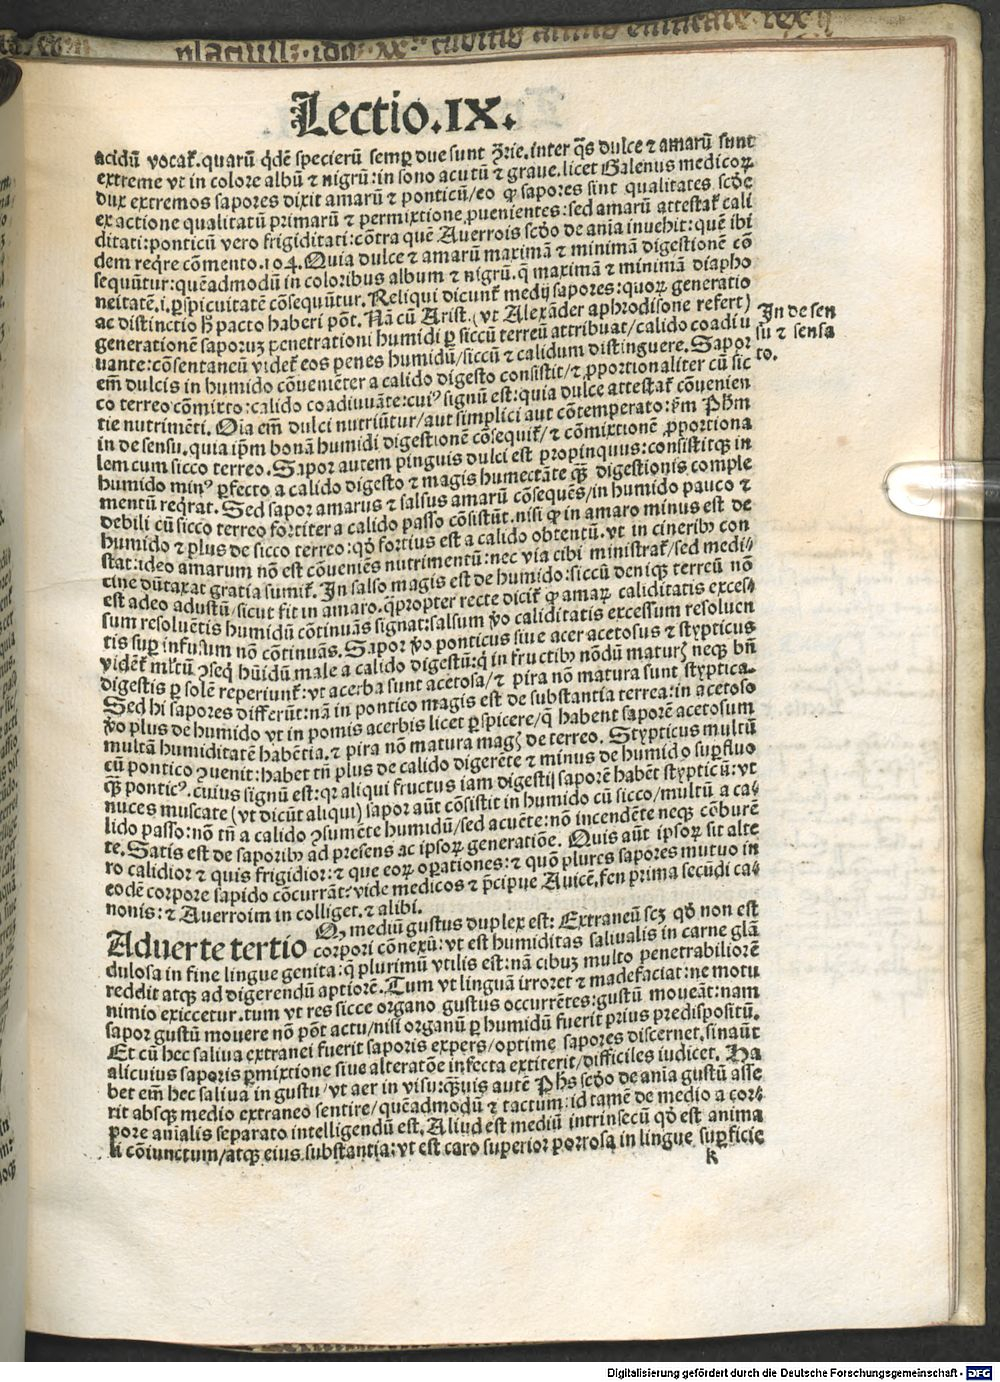 Lectio.IX.
acidū vocat᷑.quarū q̇dē specierū semꝑ due sunt ꝯ̃rie.inter q̄s dulce ⁊ amarū sunt
extreme vt in colore albū ⁊ nigrū:in sono acutū ⁊ graue.licet Galenus medicoꝝ
dux extremos sapores dixit amarū ⁊ ponticū/eo ꝙ sapores sint qualitates scḋe
ex actione qualitatū primarū ⁊ permixtione ꝓuenientes:sed amarū attestat᷑ cali
ditati:ponticū vero frigiditati:cōtra quē Auerrois scḋo de aīa inuehit:quē ibi
dem reqͥre cōmento.104.Quia dulce ⁊ amarū maximā ⁊ minimā digestionē cō
sequūtur:quēadmodū in coloribus album ⁊ nigrū.q̄ maximā ⁊ minimā diapho
neitatē.i.ꝑspicuitatē cōsequūtur.Reliqui dicunt᷑ medij sapores:quoꝝ generatio
ac distinctio hͦ pacto haberi pōt. Nā cū Arist.(vt Alexāder aphrodisone refert)
generationē saporuꝫ penetrationi humidi ꝑ siccū terreū attribuat/calido coadiu
uante:cōsentaneū videt᷑ eos penes humidū/siccū ⁊ calidum distinguere. Sapor
em̄ dulcis in humido cōueniēter a calido digesto consistit/⁊ ꝓportionaliter cū sic
co terreo cōmixto:calido coadiuuāte:cuiꝰ signū est:quia dulce attestat᷑ cōuenien
tie nutrimēti. Oīa em̄ dulci nutriūtur/aut simplici aut cōtemperato:ẜm Ph̄m
in de sensu.quia ip̄m bonā humidi digestionē cōsequit᷑/⁊ cōmixtionē ꝓportiona
lem cum sicco terreo. Sapor autem pinguis dulci est propinquus:consistitqꝫ in
humido minꝰ ꝑfecto a calido digesto ⁊ magis humectāte qͣꝫ digestionis comple
mentū reqͥrat. Sed sapor amarus ⁊ salsus amarū cōsequēs/in humido pauco ⁊
debili cū sicco terreo fortiter a calido passo cōsistūt.nisi ꝙ in amaro minus est de
humido ⁊ plus de sicco terreo:qḋ fortius est a calido obtentū.vt in cineribꝫ con
stat:ideo amarum nō est cōueniēs nutrimentū:nec via cibi ministrat᷑/sed medi⸗
cine dūtaxat gratia sumit᷑. In salso magis est de humido:siccū deniqꝫ terreū nō
est adeo adustū/sicut fit in amaro.qͣpropter recte dicit᷑ ꝙ amaꝝ caliditatis exces⸗
sum resoluētis humidū cōtinuās signat:salsum ꝟo caliditatis excessum resoluen
tis suꝑ infusum nō cōtinuās. Sapor ꝟo ponticus siue acer acetosus ⁊ stypticus
vident᷑ ml̄tū ꝯseqͥ hūidū male a calido digestū:qͥ in fructibꝫ nōdū maturꝭ neqꝫ bn̄
digestis ꝑ solē reperiunt᷑:vt acerba sunt acetosa/⁊ pira nō matura sunt styptica.
Sed hi sapores differūt:nā in pontico magis est de substantia terrea:in acetoso
ꝟo plus de humido vt in pomis acerbis licet ꝑspicere/q̄ habent saporē acetosum
multā humiditatē habētia.⁊ pira nō matura magꝭ de terreo. Stypticus multū
cū pontico ꝯuenit:habet tn̄ plus de calido digerēte ⁊ minus de humido suꝑfluo
qͣꝫ ponticꝰ.cuius signū est:qꝛ aliqui fructus iam digestij saporē habēt stypticū:vt
nuces muscate(vt dicūt aliqui)sapor aūt cōsistit in humido cū sicco/multū a ca⸗
lido passo:nō tn̄ a calido ꝯsumēte humidū/sed acuēte:nō incendēte neqꝫ cōburē
te. Satis est de saporibꝫ ad presens ac ipsoꝝ generatiōe. Quis aūt ipsoꝝ sit alte
ro calidior ⁊ quis frigidior:⁊ que eoꝝ oꝑationes:⁊ quō plures sapores mutuo in
eodē corpore sapido cōcurrāt:vide medicos ⁊ p̄cipue Auicē.fen prima secūdi ca⸗
nonis:⁊ Auerroim in colliget.⁊ alibi.
In de sen
sū ⁊ sensa
to.
Aduerte tertio Qꝫ mediū gustus duplex est: Extraneū scꝫ qḋ non est
corpori cōnexū:vt est humiditas saliualis in carne glā
dulosa in fine lingue genita:q̄ plurimū vtilis est:nā cibuꝫ multo penetrabiliorē
reddit atqꝫ ad digerendū aptiorē. Tum vt linguā irroret ⁊ madefaciat:ne motu
nimio exiccetur.tum vt res sicce organo gustus occurrētes:gustū moueāt:nam
sapor gustū mouere nō pōt actu/nisi organū ꝑ humidū fuerit prius predispositū.
Et cū hec saliua extranei fuerit saporis expers/optime sapores discernet.sinaūt
alicuius saporis ꝑmixtione siue alteratōe infecta extiterit/difficiles iudicet. Ha
bet em̄ hec saliua in gustu/vt aer in visu:qͣꝫuis autē Ph̄s scḋo de anīa gustū asse
rit absqꝫ medio extraneo sentire/quēadmodū ⁊ tactum:id tamē de medio a cor⸗
pore anīalis separato intelligendū est. Aliud est mediū intrinsecū qḋ est anima
li cōiunctum/atqꝫ eius substantia:vt est caro superior porrosa in lingue suꝑficie
k
Digitalisierung gefördert durch die Deutsche Forschungsgemeinschaft - DFG